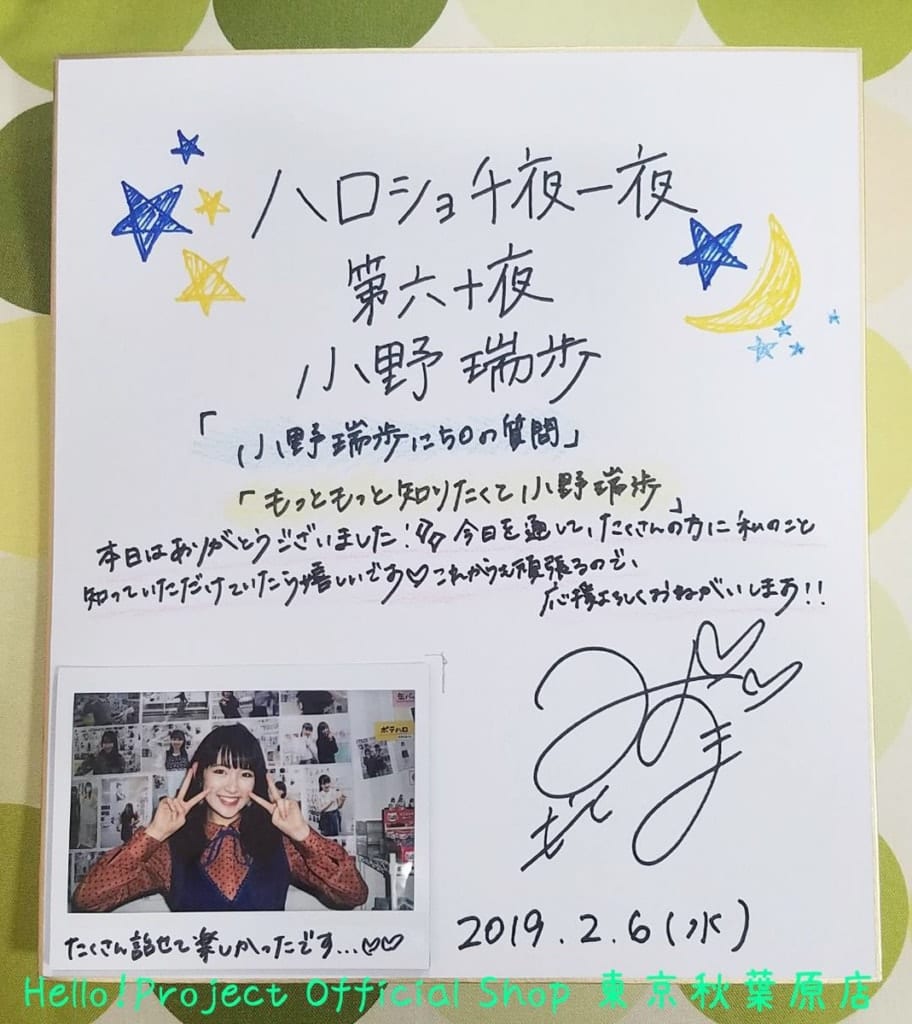 ハロショ千夜一夜
第六十夜
小野瑞歩
「小野瑞歩に50の質問」
「もっともっと知りたくて小野瑞歩」
本日はありがとうございました!今日を通して、たくさんの方に私のこと
知っていただけていたら嬉しいです♡これからも頑張るので、
応援よろしくおねがいします!!
ポテハロ
みずほ
たくさん話せて楽しかったです...♡♡
2019.2.6(水)
Hello!Project Official Shop 東京秋葉原店